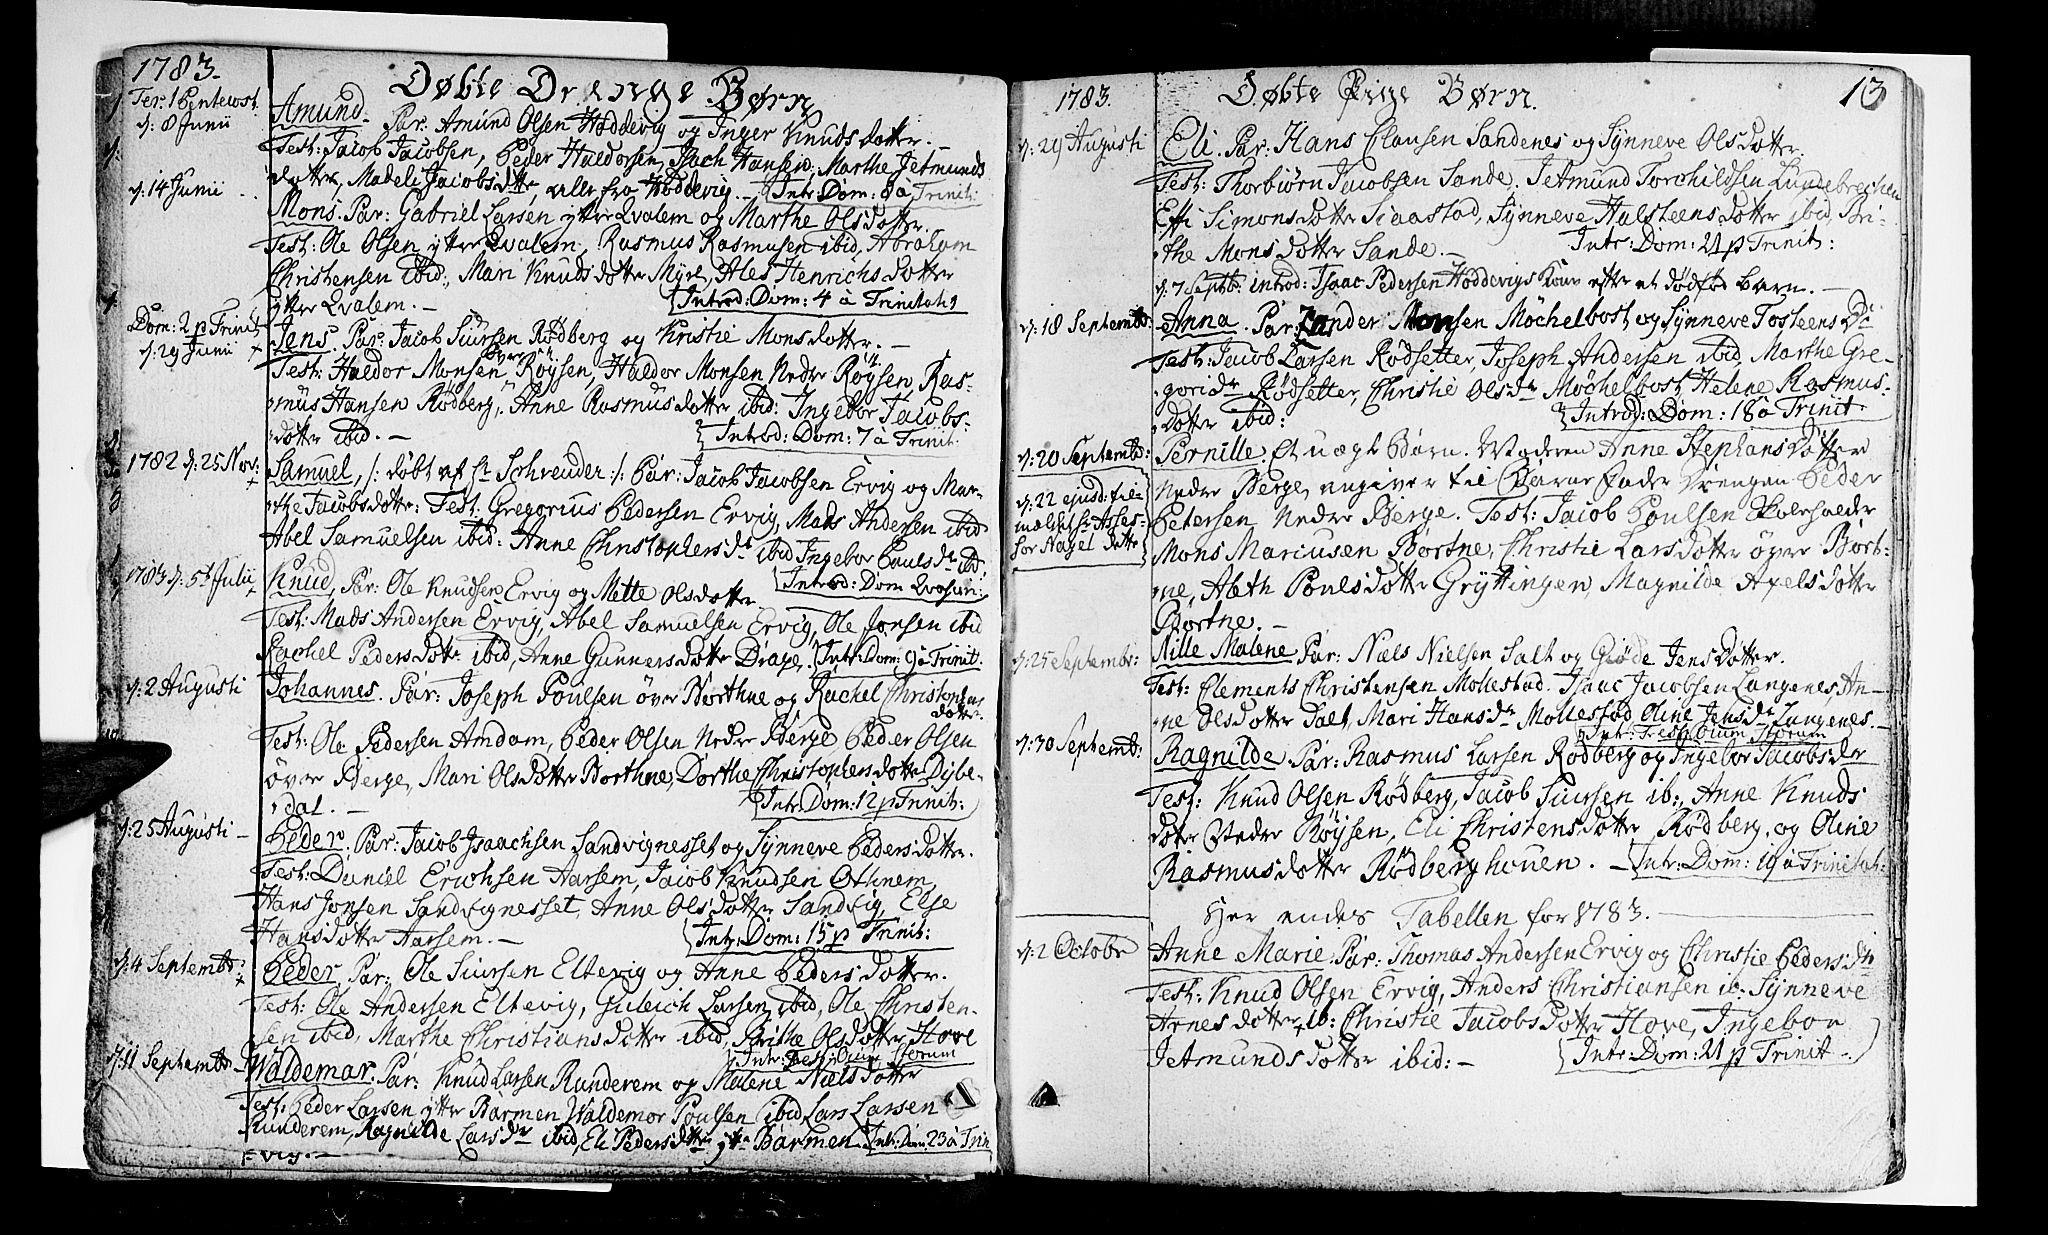 1783.
Døbte Drenge Børn
Fer: 1 Pentecost.
d: 8 Junii
Amund. Par: Amund Olsen Hoddevig og Inger Knudsdotter. -
Test: Jacob Jacobsen, Peder Haldorsen, Isach Hansen, Marthe Jetmunds
dotter, Madeli Jacobsdtter, alle fra Hoddevig. - Intr: Dom: 8 à Trinit:
d: 14 Junii
Mons. Par: Gabriel Larsen yttre Qvalem og Marthe Olsdotter.
Test: Ole Olsen yttre Qvalem, Rasmus Rasmusen ibid, Abraham
Christensen ibid:, Mari Knudsdotter Myre, Ales Henrichsdotter
yttre Qvalem. - Introd: Dom: 4 à Trinitatis
Dom: 2 p Trinit
d: 29 Junii
Jens. Par: Jacob Siursen Rødberg og Kristie Monsdotter. -
Test: Haldor Monsen øvre Røÿsen, Haldor Monsen Nedre Røÿsen, Ras-
mus Hansen Rødberg, Anne Rasmusdotter ibid: Ingebor Jacobs-
dotter ibid. - Introd: Dom: 7 à Trinit:
1782 d: 25 Nov:
Samuel, /: døbt af Hr Schreuder :/ Par: Jacob Jacobsen Ervig og Mar-
the Jacobsdotter: Test: Gregorius Pedersen Ervig, Mads Andersen ibid
Abel Samuelsen ibid: Anne Christophersdr ibid, Ingebor Paulsdr ibd:
Introd: Dom Qvasim:
1783 d: 5t Julii
Knud, Par: Ole Knudsen Ervig og Mette Olsdotter
Test: Mads Andersen Ervig, Abel Samuelsen Ervig, Ole Jonsen ibid
Rachel Pedersdottr ibid, Anne Gunnersdotter Drage. Intr: Dom: 9 à Trinit.
d: 2 Augusti
Johannes. Par: Joseph Poulsen över Borthne og Rachel Christophers
dotter.
Test: Ole Pedersen Amdam, Peder Olsen Nedre Berge, Peder Olsen
över Berge, Mari Olsdotter Borthne, Dorthe Christophersdotter Dybe-
dal. - Intr: Dom: 12 p Trinit:
d: 25 Augusti -
Peder. Par: Jacob Isaachsen Sandvignesset og Sÿnneve Pedersdotter.
Test: Daniel Erichsen Aarsem, Jacob Knudsen Othnem,
Hans Jonsen Sandvignesset, Anne Olsdotter Sandvig, Else
Hansdotter Aarsem. - Intr: Dom: 15 p Trinit:
d: 4 Septembr:
Peder. Par: Ole Siursen Eltevig og Anne Pedersdotter.
Test: Ole Andersen Eltevig, Guleich Larsen ibid, Ole Christen-
sen ibid, Marthe Christiansdotter ibid, Brithe Olsdotter Hove
Intr: Fest: Omn: Storum
d: 11 Septembr -
Waldemar. Par: Knud Larsen Runderem og Malene Nielsdotter
Test: Peder Larsen yttre Barmen Waldemor Poulsen ibid Lars Larsen
Runderem, Ragnilde Larsdr ibid, Eli Pedersdotter yttr Barmen Intr: Dom 23 à Trin
vig. -
1783.
Døbte Pige Børn.
13
d: 29 Augusti
Eli. Par: Hans Clausen Sandenes og Sÿnneve Olsdotter.
Test: Thorbiørn Jacobsen Sande, Jetmund Torchildsen Lundebrechen
Effi Simonsdotter Siaastad, Sÿnneve Halsteensdotter ibid, Bri-
the Monsdotter Sande. - Intr: Dom: 21 p Trinit:
d: 7 Septbr: introd: Isaac Pedersen Hoddevigs Kone efter et dødfød barn. -
d: 18 Septembr:
Anna. Par: Zander Monsen Möchelbost og Sÿnneve Tosteens Dr
Test: Jacob Larsen Rødsetter, Joseph Andersen ibid, Marthe Gre-
goridr Rødsetter, Christie Olsdr Möchelbost, Helene Rasmus-
dotter ibid: Introd: Dom: 18 à Trinit
d: 20 Septembr:
Pernille. Et uægt Børn. Moderen Anne Stephans Dotter
Nedre Berge, angiver til Barne Fader Drengen Peder
Petersen Nedre Berge. Test: Jacob Poulsen Skoleholder
Mons Mariusen Bortne, Christie Larsdotter över Bort-
ne, Abeth Ponlsdotter Grÿttingen, Magnilde Axelsdotter
Bortne. -
d: 22 ejusd: til-
meldt Hr Asses-
sor Nagel dette
d: 25 Septembr:
Nille Malene. Par: Niels Nielsen Salt og Grøde Jensdotter.
Test: Clements Christensen Mollestad. Isaac Jacobsen Langenes, An-
ne Olsdotter Salt, Mari Hansdr Mollestad, Oline Jensdr Langenes. -
Intr: Fest: Omn: Storum
d: 30 Septemb:
Ragnilde Par: Rasmus Larsen Rödberg og Ingebor Jacobsdr
Test: Knud Olsen Rödberg, Jacob Siursen ib:, Anne Knuds
doter Neder Röÿsen, Eli Christensdotter Rödberg, og Oline
Rasmusdotter Rödberghouen. - Intr: Dom: 19 à Trinitat:
Her endes Tabellen for 1783.
d: 2 Octobr
Anne Marie. Par: Thomas Andersen Ervig og Christie Pedersdtr
Test: Knud Olsen Ervig, Anders Christiansen ib: Sÿnneve
Arnesdotter ib: Christie Jacobsdotter Hove, Ingebor
Jetmundsdotter ibid: - Intr: Dom: 21 p Trinit.